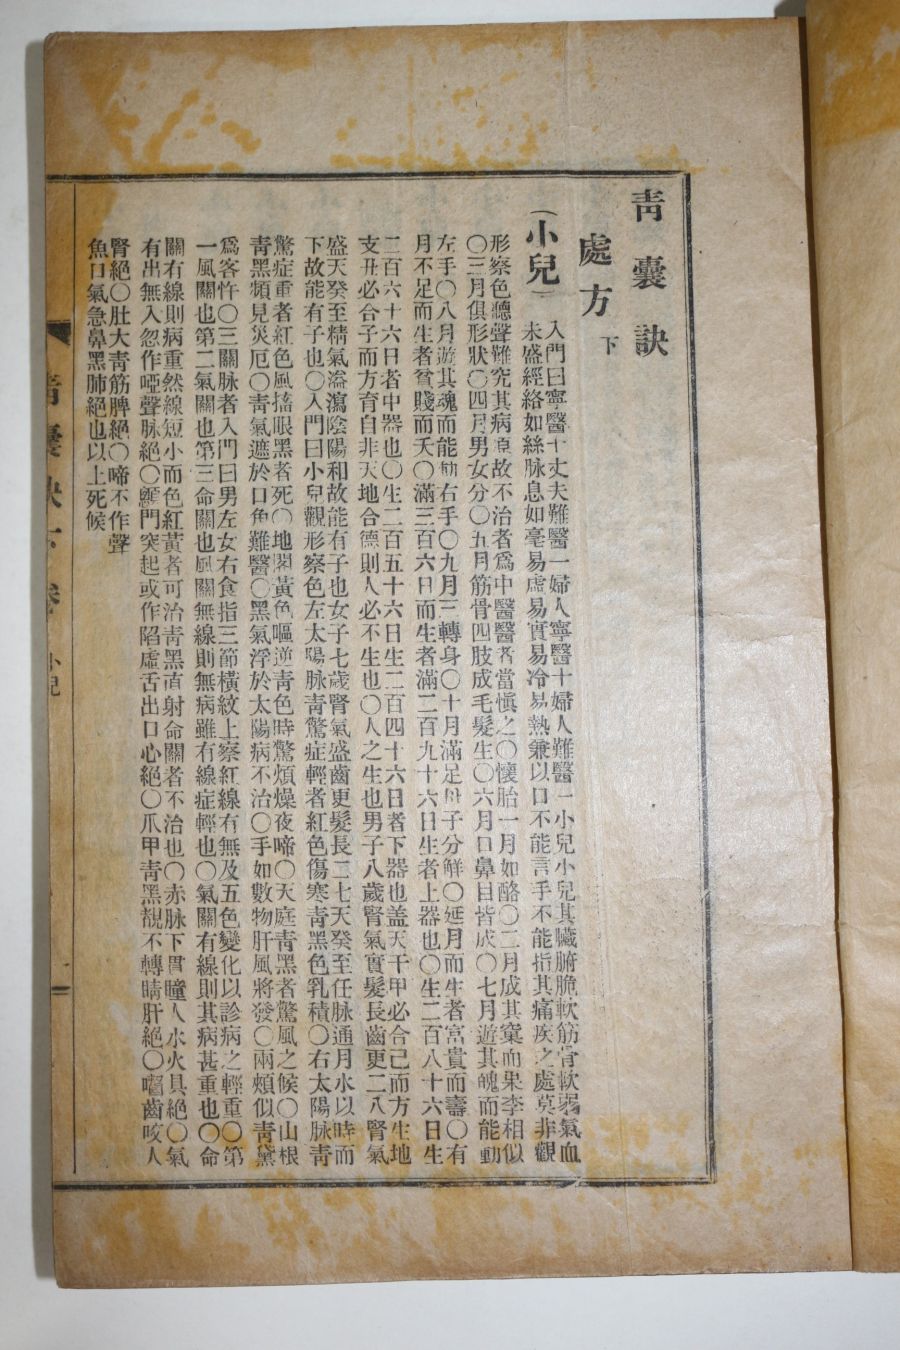 靑囊訣
處方 下
(小兒)
入門曰寧醫十丈夫難醫一婦人寧醫十婦人難醫一小兒小兒其臟腑脆軟筋骨軟弱氣血
未盛經絡如絲脉息如毫易虛易實易冷易熱兼以口不能言手不能指其痛疾之處莫非觀
形察色聽聲難究其病原故不治者爲中醫醫者當愼之〇懷胎一月如酪〇二月成其窠血果李相似
〇三月俱形狀〇四月男女分〇五月筋骨四肢成毛髮生〇六月口鼻目皆成〇七月遊其魄而能動
左手〇八月遊其魂而能動右手〇九月三轉身〇十月滿足母子分鮮〇延月而生者富貴而壽〇有
月不足而生者貧賤而夭〇滿三百六日而生者滿二百九十六日生者上器也〇生二百八十六日生
二百六十六日者中器也〇生二百五十六日生二百四十六日者下器也盖天干甲必合己而方生地
支丑必合子而方育自非天地合德則人必不生也〇人之生也男子八歲腎氣實髮長齒更二八腎氣
盛天癸至精氣溢瀉陰陽和故能有子也女子七歲腎氣盛齒更髮長二七天癸至任脉通月水以時而
下故能有子也〇入門曰小兒觀形察色左太陽脉靑驚症輕者紅色傷寒靑黑色乳積〇右太陽脉靑
驚症重者紅色風搐眼黑者死〇地閣黃色嘔逆靑色時驚煩燥夜啼〇天庭靑黑者驚風之候〇山根
靑黑頻見災厄〇靑氣遮於口角難醫〇黑氣浮於太陽病不治〇手如數物肝風將發〇兩頰似靑黛
爲客忤〇三關脉者入門曰男左女右食指三節橫紋上察紅線有無及五色變化以診病之輕重〇第
一風關也第二氣關也第三命關也風關無線則無病雖有線症輕也〇氣關有線則其病甚重也〇命
關有線則病重然線短小而色紅黃者可治靑黑直射命關者不治也〇赤脉下貫瞳人水火具絕〇氣
有出無入忽作啞聲脉絕〇顖門突起或作陷虛舌出口心絕〇爪甲靑黑覩不轉睛肝絕〇囓齒咬人
腎絕〇肚大靑筋脾絕〇啼不作聲
魚口氣急鼻黑肺絕也以上死候
靑囊訣下 卷 小兒